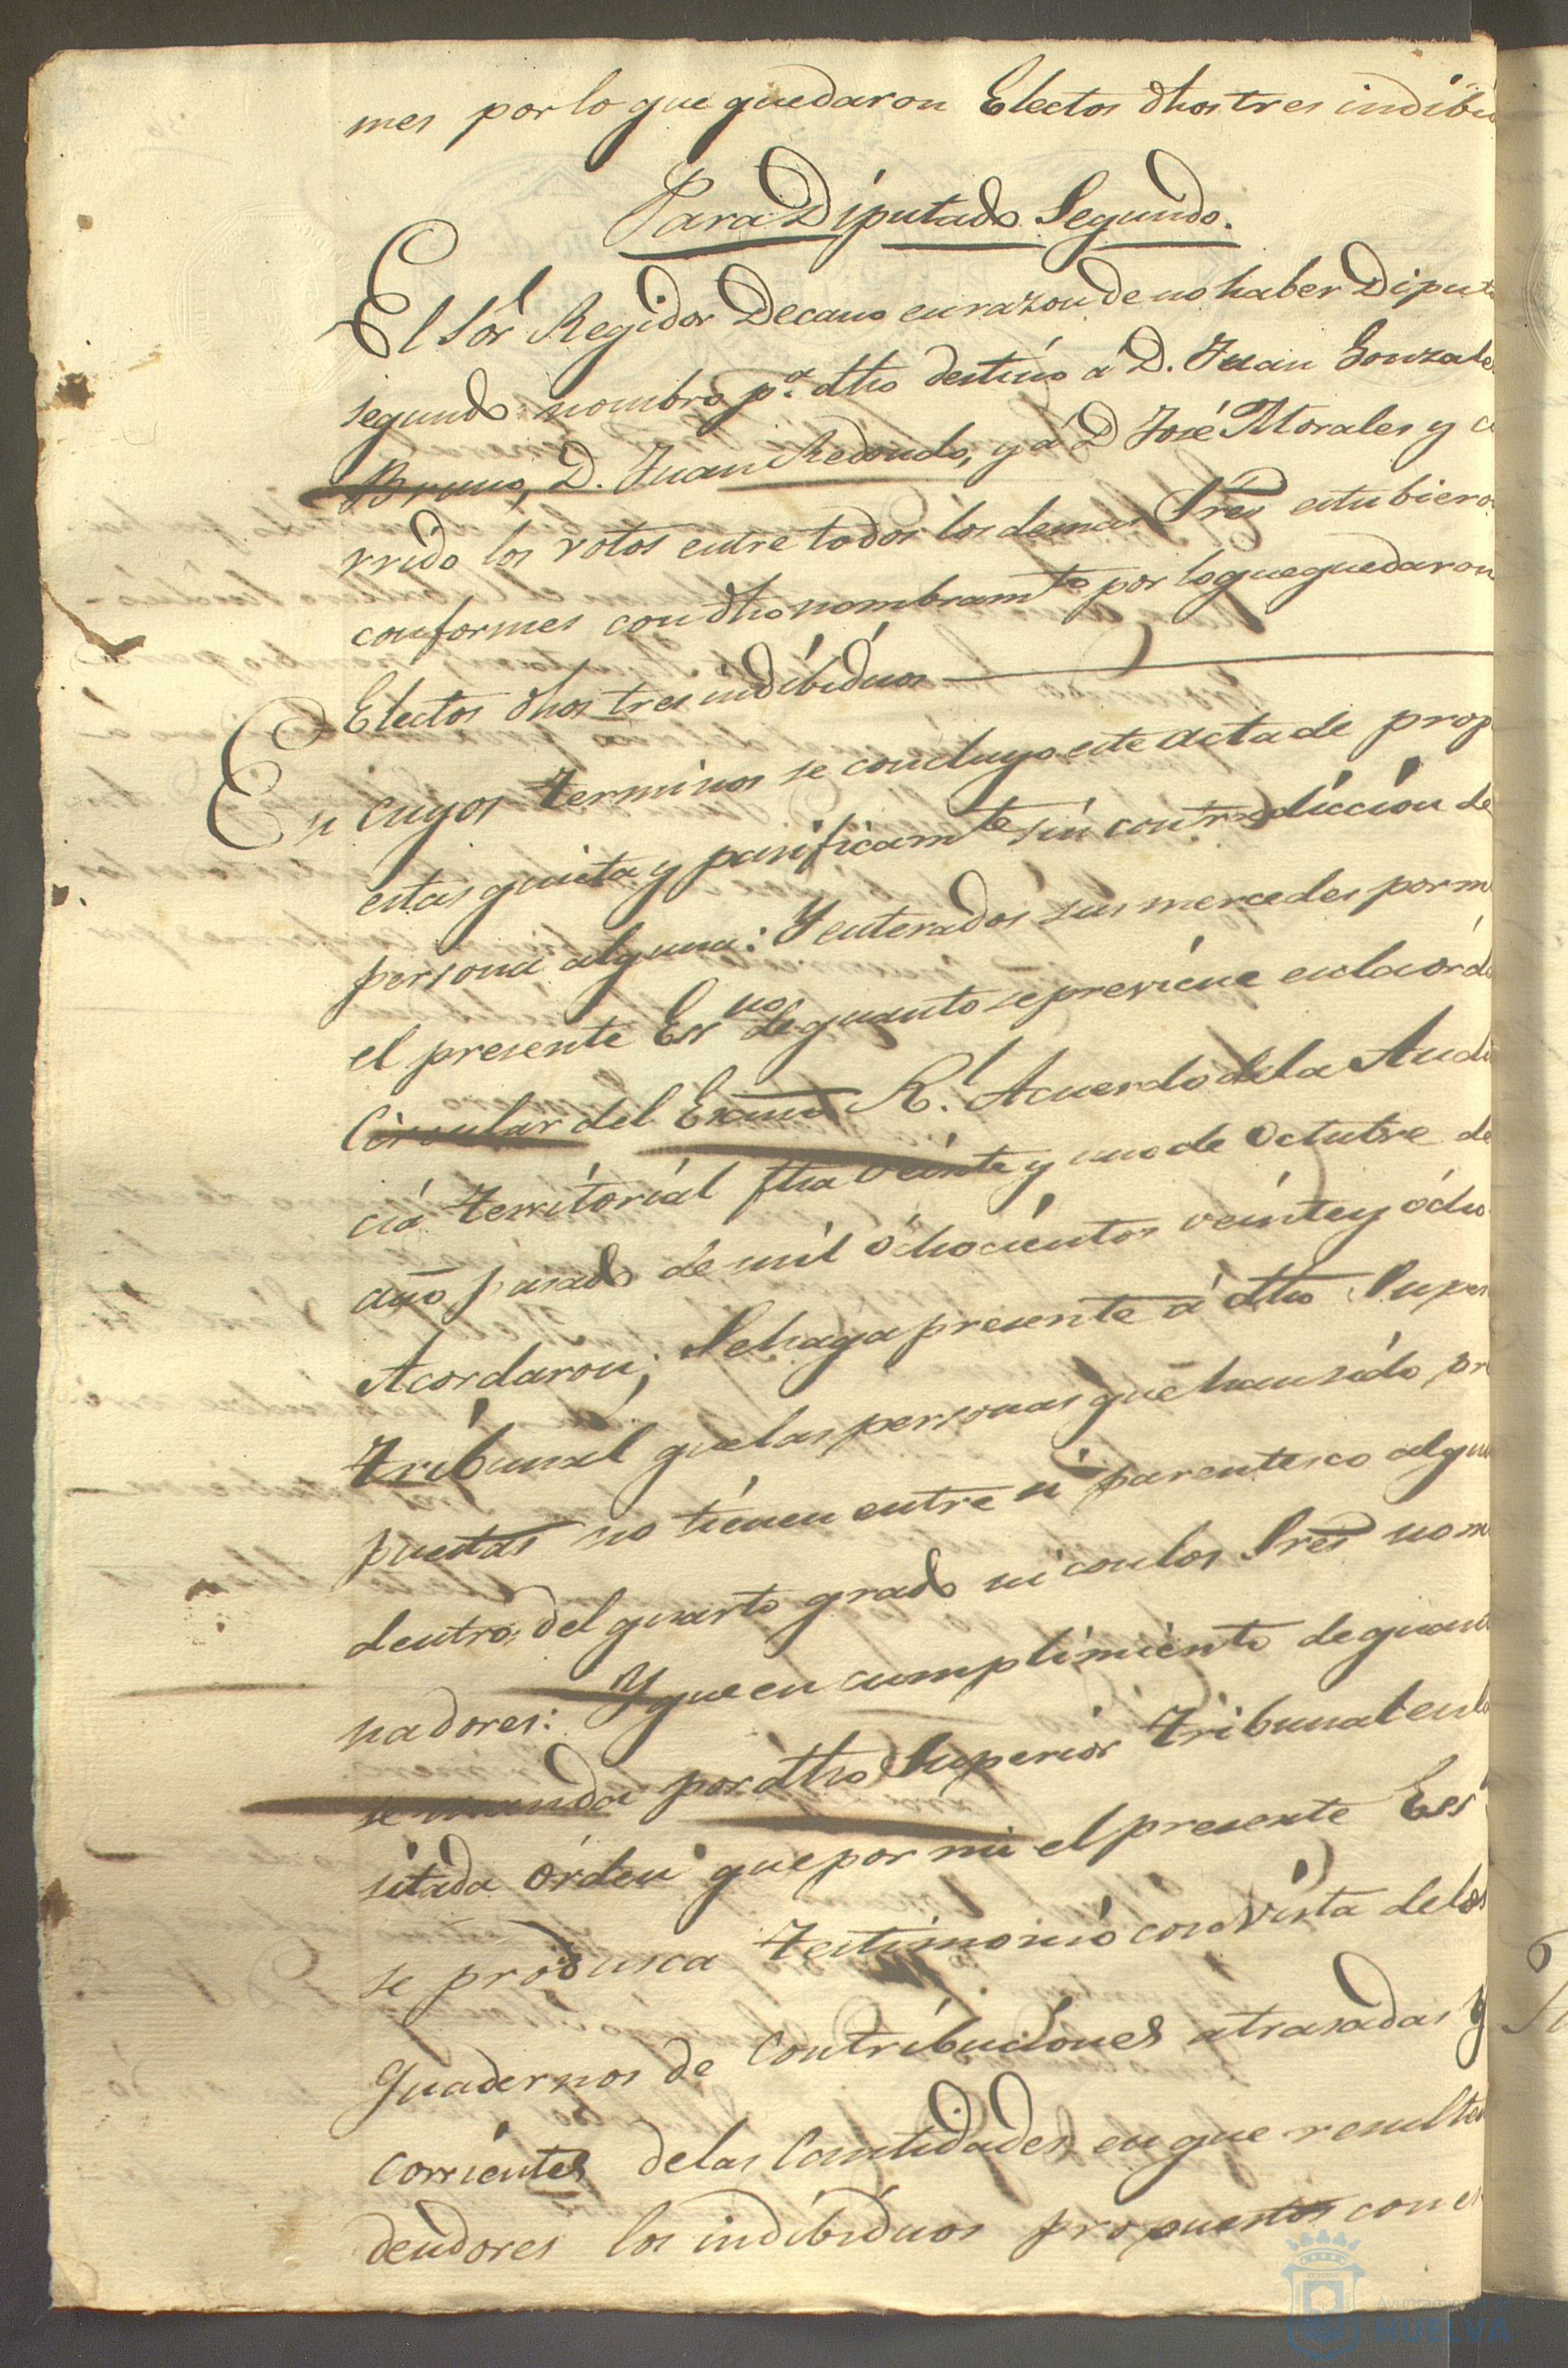 mes por lo que quedaron Electos dhos tres indibiu
Para Diputado Segundo.
El Sor Regidor Decano en razon de no haber Diputa
segundo nombro pa. dho destino a D. Juan Gonzale
Bruno, D. Juan Redondo, y á D José Morales y co
rrido los votos entre todos los demas Sres estubiero
conformes con dho nombramto por lo que quedaron
Electos dhos tres indibiduos
En cuyos terminos se concluyo este acta de prop
estas quieta y pasificamte sin contradiccion de
persona alguna: Y enterados sus mercedes por mi
el presente Essno de quanto se previene en la ordn
Circular del Exmo Rl. Acuerdo de la Audi
cia territorial fha veinte y uno de Octubre de
año pasado de mil óchocientos veinte y ócho
Acordaron; Se haga presente á dho Super
tribunal que las personas que han sido pro
puestas no tienen entre si parentesco algun
dentro del quarto grado ni con los Sres nomi
nadores: Y que en cumplimiento de quant
se manda por dho Superior tribunal en la
sitada órden que por mi el presente Ess
se produsca testimonio con vista de los
quadernos de contribuciones atrasadas y
corrientes de las Cantidades en que resulten
deudores los indibiduos propuestos con es
Ayuntamiento
HUELVA